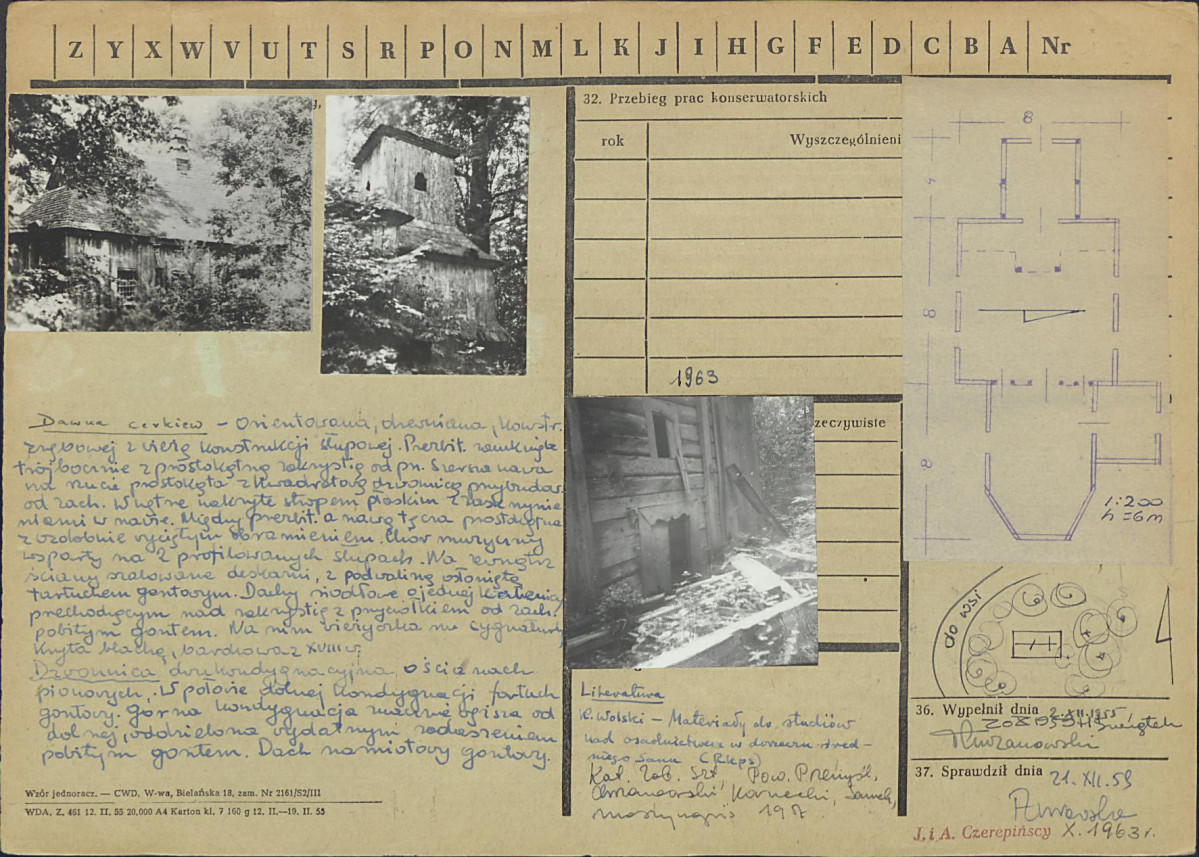 Z Y X W V U T S R P O N M L K J I H G F E D C B A Nr
32. Przebieg prac konserwatorskich
rok Wyszczególnieni
1963
zeczywiste
Dawna cerkiew – orientowana, drewniana, konstr.
zrębowej z wieżą konstrukcji słupowej. Prezbit. zamknięte
trójbocznie z prostokątną zakrystią od pn. Szersza nawa
na rzucie prostokąta z kwadratową dzwonnicą przybudow.
od zach. Wnętrze nakryte stropem płaskim z zaskrzynie
niami w nawie. Między prezbit. a nawą tęcza prostokątna
z ozdobnie wyciętym obramieniem. Chór muzyczny
wsparty na 2 profilowanych słupach. Na zewnątrz
ściany szalowane deskami, z podwaliną osłoniętą
fartuchem gontowym. Dachy siodłowe o jednej kalenicy
przechodzącym nad zakrystię z przyczółkiem od zach.
pobitym gontem. Na nim wieżyczka na sygnaturkę
kryta blachą, barokowa z XVIII w.
Dzwonnica dwukondygnacyjna, o ścianach
pionowych. W połowie dolnej kondygnacji fartuch
gontowy. Górna kondygnacja znacznie węższa od
dolnej, oddzielona wydatnym zadaszeniem
pobitym gontem. Dach namiotowy gontowy.
Wzór jednoracz. — CWD, W-wa, Bielańska 18, zam. Nr 2161/S2/III
WDA, Z. 461 12. II. 55 20.000 A4 Karton kl. 7 160 g 12. II.—19. II. 55
Literatura
K. Wolski – Materiały do studiów
nad osadnictwem w dorzeczu śred-
niego Sanu (Rkps)
Kat. Zab. Szt. Pow. Przemyśl,
8
4
8
8
1:200
h = 6m
do wsi
36. Wypełnił dnia 2.XII.1955
37. Sprawdził dnia 21.XII.59
J. i A. Czerepińscy X.1963 r.